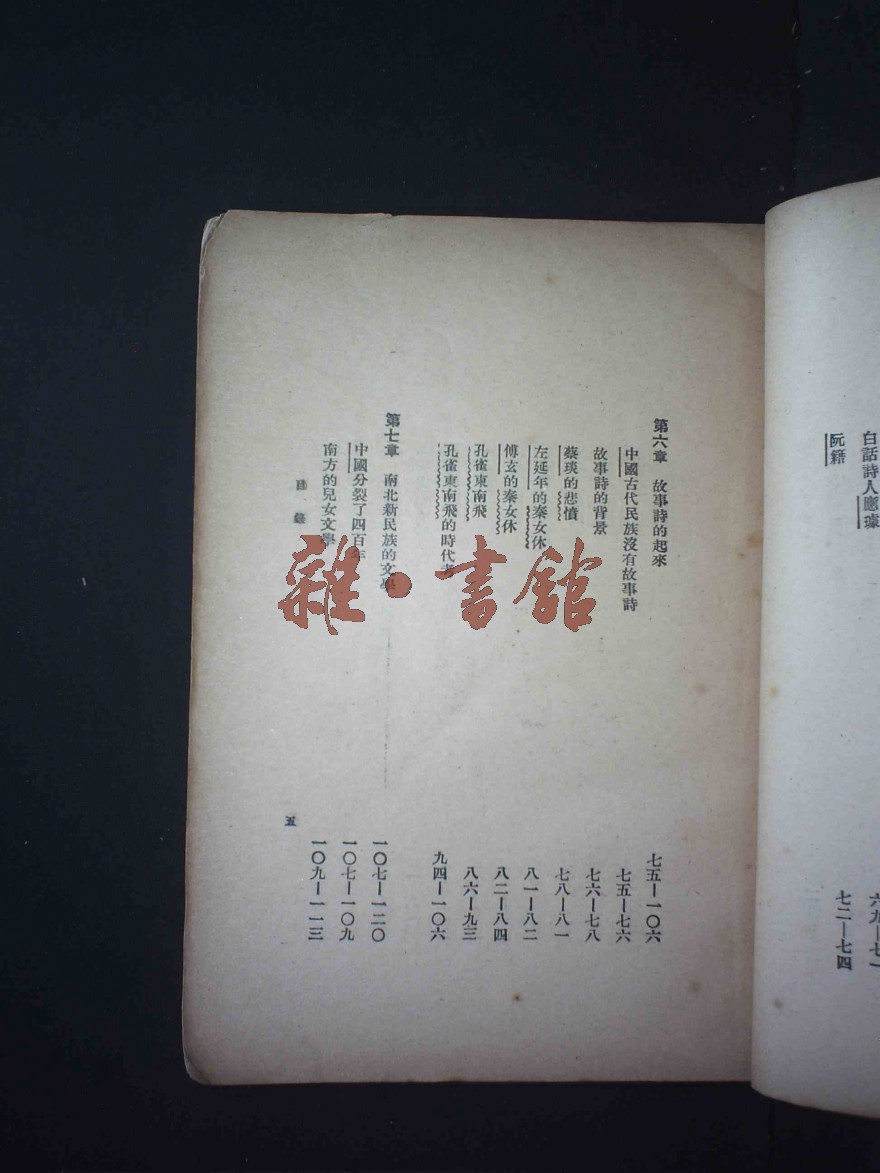 白話詩人應璩 六九—七一
阮籍 七二—七四
第六章 故事詩的起來 七五—一〇六
中國古代民族沒有故事詩 七五—七六
故事詩的背景 七六—七八
蔡琰的悲憤 七八—八一
左延年的秦女休 八一—八二
傅玄的秦女休 八二—八四
孔雀東南飛 八六—九三
孔雀東南飛的時代考 九四—一〇六
第七章 南北新民族的文學 一〇七—一二〇
中國分裂了四百年 一〇七—一〇九
南方的兒女文學 一〇九—一一三
目錄 五
雜·書館